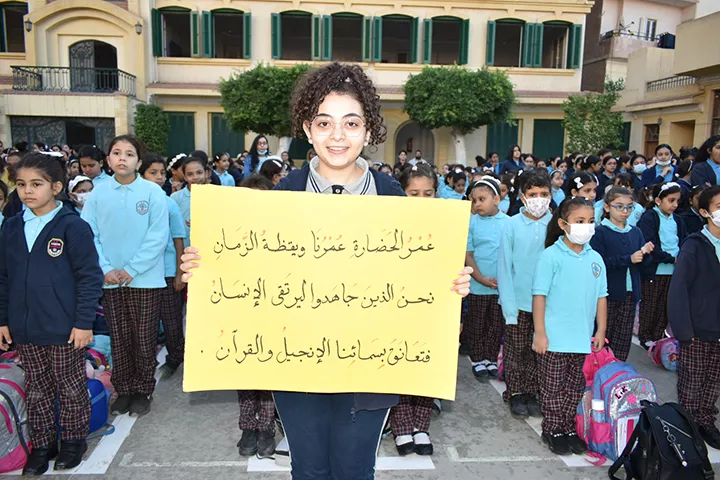 عُمْرُ الحَضَارةِ عُمْرُنَا ويقظةُ الزَّمانِ
نحنُ الذينَ جَاهدوا ليرتَقى الإنسَانُ
فتَعانقَ بِسَمائنا الإنجيلُ والقرآنُ .